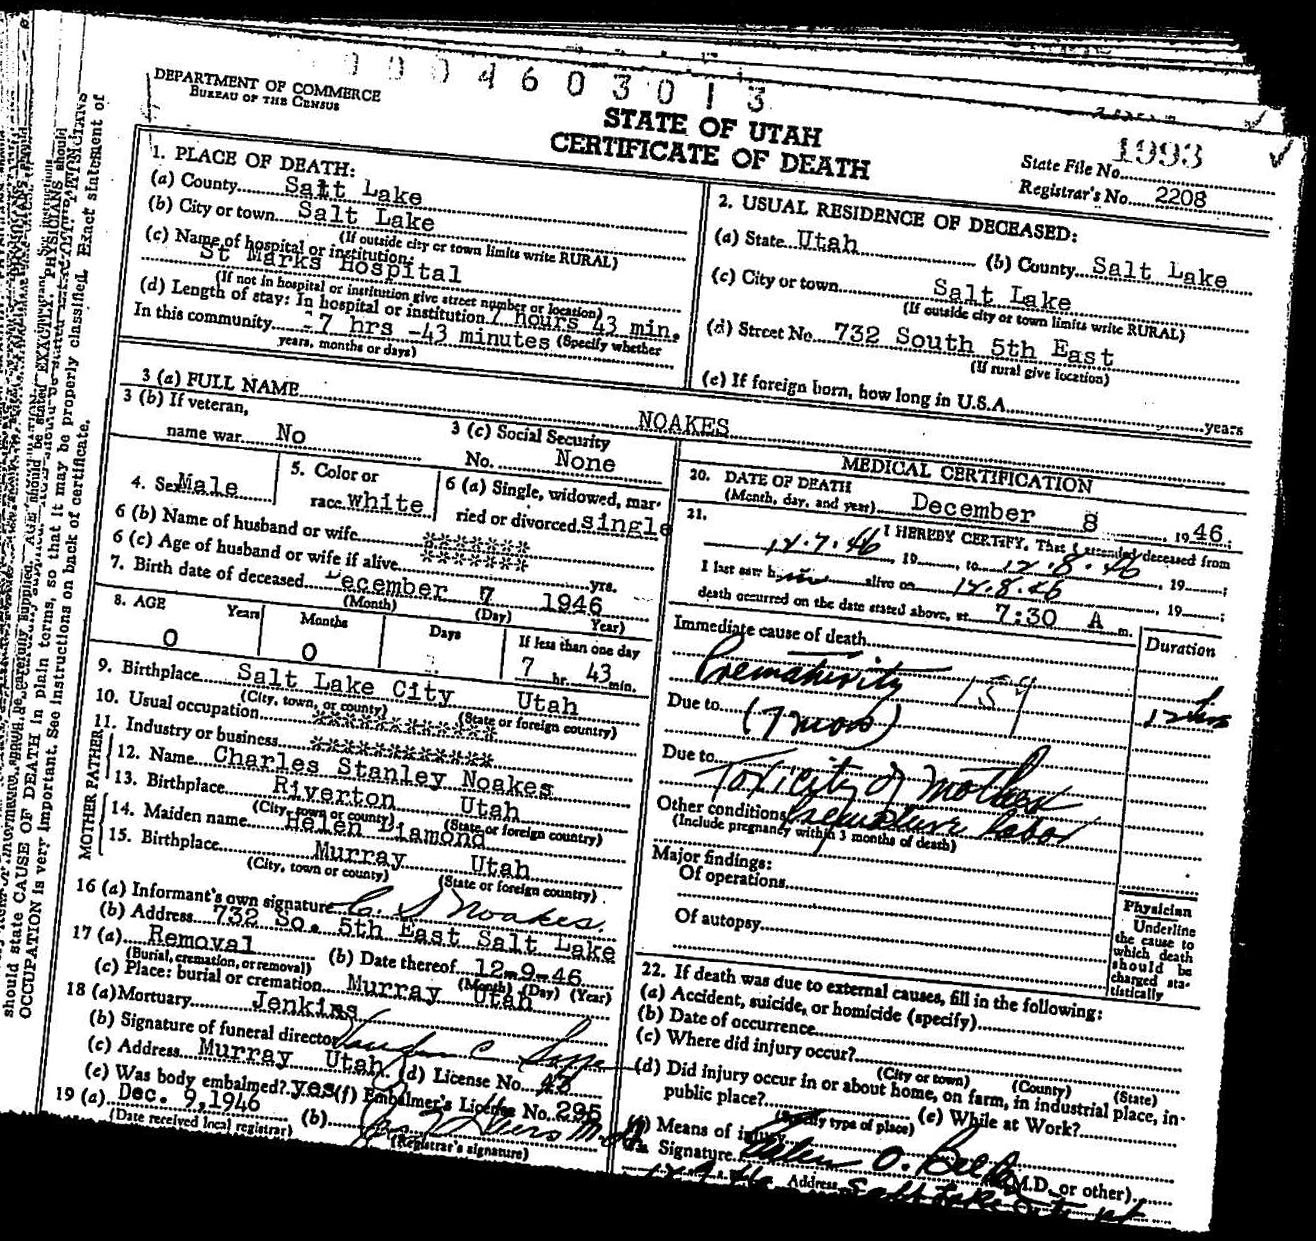 0004603013
DEPARTMENT OF COMMERCE
BUREAU OF THE CENSUS
STATE OF UTAH
CERTIFICATE OF DEATH
State File No. 1993
Registrar's No. 2208
1. PLACE OF DEATH:
(a) County Salt Lake
(b) City or town Salt Lake
(If outside city or town limits write RURAL)
(c) Name of hospital or institution:
St Marks Hospital
(If not in hospital or institution give street number or location)
(d) Length of stay: In hospital or institution 7 hours 43 min.
In this community -7 hrs -43 minutes (Specify whether
years, months or days)
2. USUAL RESIDENCE OF DECEASED:
(a) State Utah (b) County Salt Lake
(c) City or town Salt Lake
(If outside city or town limits write RURAL)
(d) Street No. 732 South 5th East
(If rural give location)
(e) If foreign born, how long in U.S.A. years
3 (a) FULL NAME NOAKES
3 (b) If veteran,
name war. No
3 (c) Social Security
No. None
4. Sex Male
5. Color or
race white
6 (a) Single, widowed, mar-
ried or divorced single
6 (b) Name of husband or wife ********
6 (c) Age of husband or wife if alive ******** yrs.
7. Birth date of deceased December 7 1946
(Month) (Day) Year)
8. AGE Years Months Days If less than one day
0 0 7 hr. 43 min.
9. Birthplace Salt Lake City Utah
(City, town, or county) (State or foreign country)
10. Usual occupation **************
11. Industry or business **************
FATHER
12. Name Charles Stanley Noakes
13. Birthplace Riverton Utah
(City, town or county) (State or foreign country)
MOTHER
14. Maiden name Helen Diamond
15. Birthplace Murray Utah
(City, town or county) (State or foreign country)
16 (a) Informant's own signature C. S Noakes.
(b) Address 732 So. 5th East Salt Lake
17 (a) Removal (b) Date thereof 12-9-46
(Burial, cremation, or removal) (Month) (Day) (Year)
(c) Place: burial or cremation Murray Utah
18 (a) Mortuary Jenkins
(b) Signature of funeral director
(c) Address Murray Utah. (d) License No. 43
(e) Was body embalmed? yes (f) Embalmer's License No. 295
19 (a) Dec. 9, 1946 (b)
(Date received local registrar) (Registrar's signature)
MEDICAL CERTIFICATION
20. DATE OF DEATH
(Month, day, and year) December 8, 1946.
21. I HEREBY CERTIFY, That I attended deceased from
12.7.46 19 to 12.8.46, 19 ;
I last saw him alive on 12.8.46, 19 ;
death occurred on the date stated above, at 7:30 A m.
Immediate cause of death Duration
Prematurity 159
Due to (7 mos)
Due to Toxicity of Mother
Other conditions Premature labor
(Include pregnancy within 3 months of death)
Major findings:
Of operations
Of autopsy
Physician
Underline
the cause to
which death
should be
charged sta-
tistically
22. If death was due to external causes, fill in the following:
(a) Accident, suicide, or homicide (specify)
(b) Date of occurrence
(c) Where did injury occur?
(City or town) (County) (State)
(d) Did injury occur in or about home, on farm, in industrial place, in-
public place?
(Specify type of place) (e) While at Work?
(f) Means of injury
Signature (M.D. or other)
12 9 46 Address Salt Lake City ut
should state CAUSE OF DEATH in plain terms, so that it may be properly classified. Exact statement of
OCCUPATION is very important. See instructions on back of certificate.